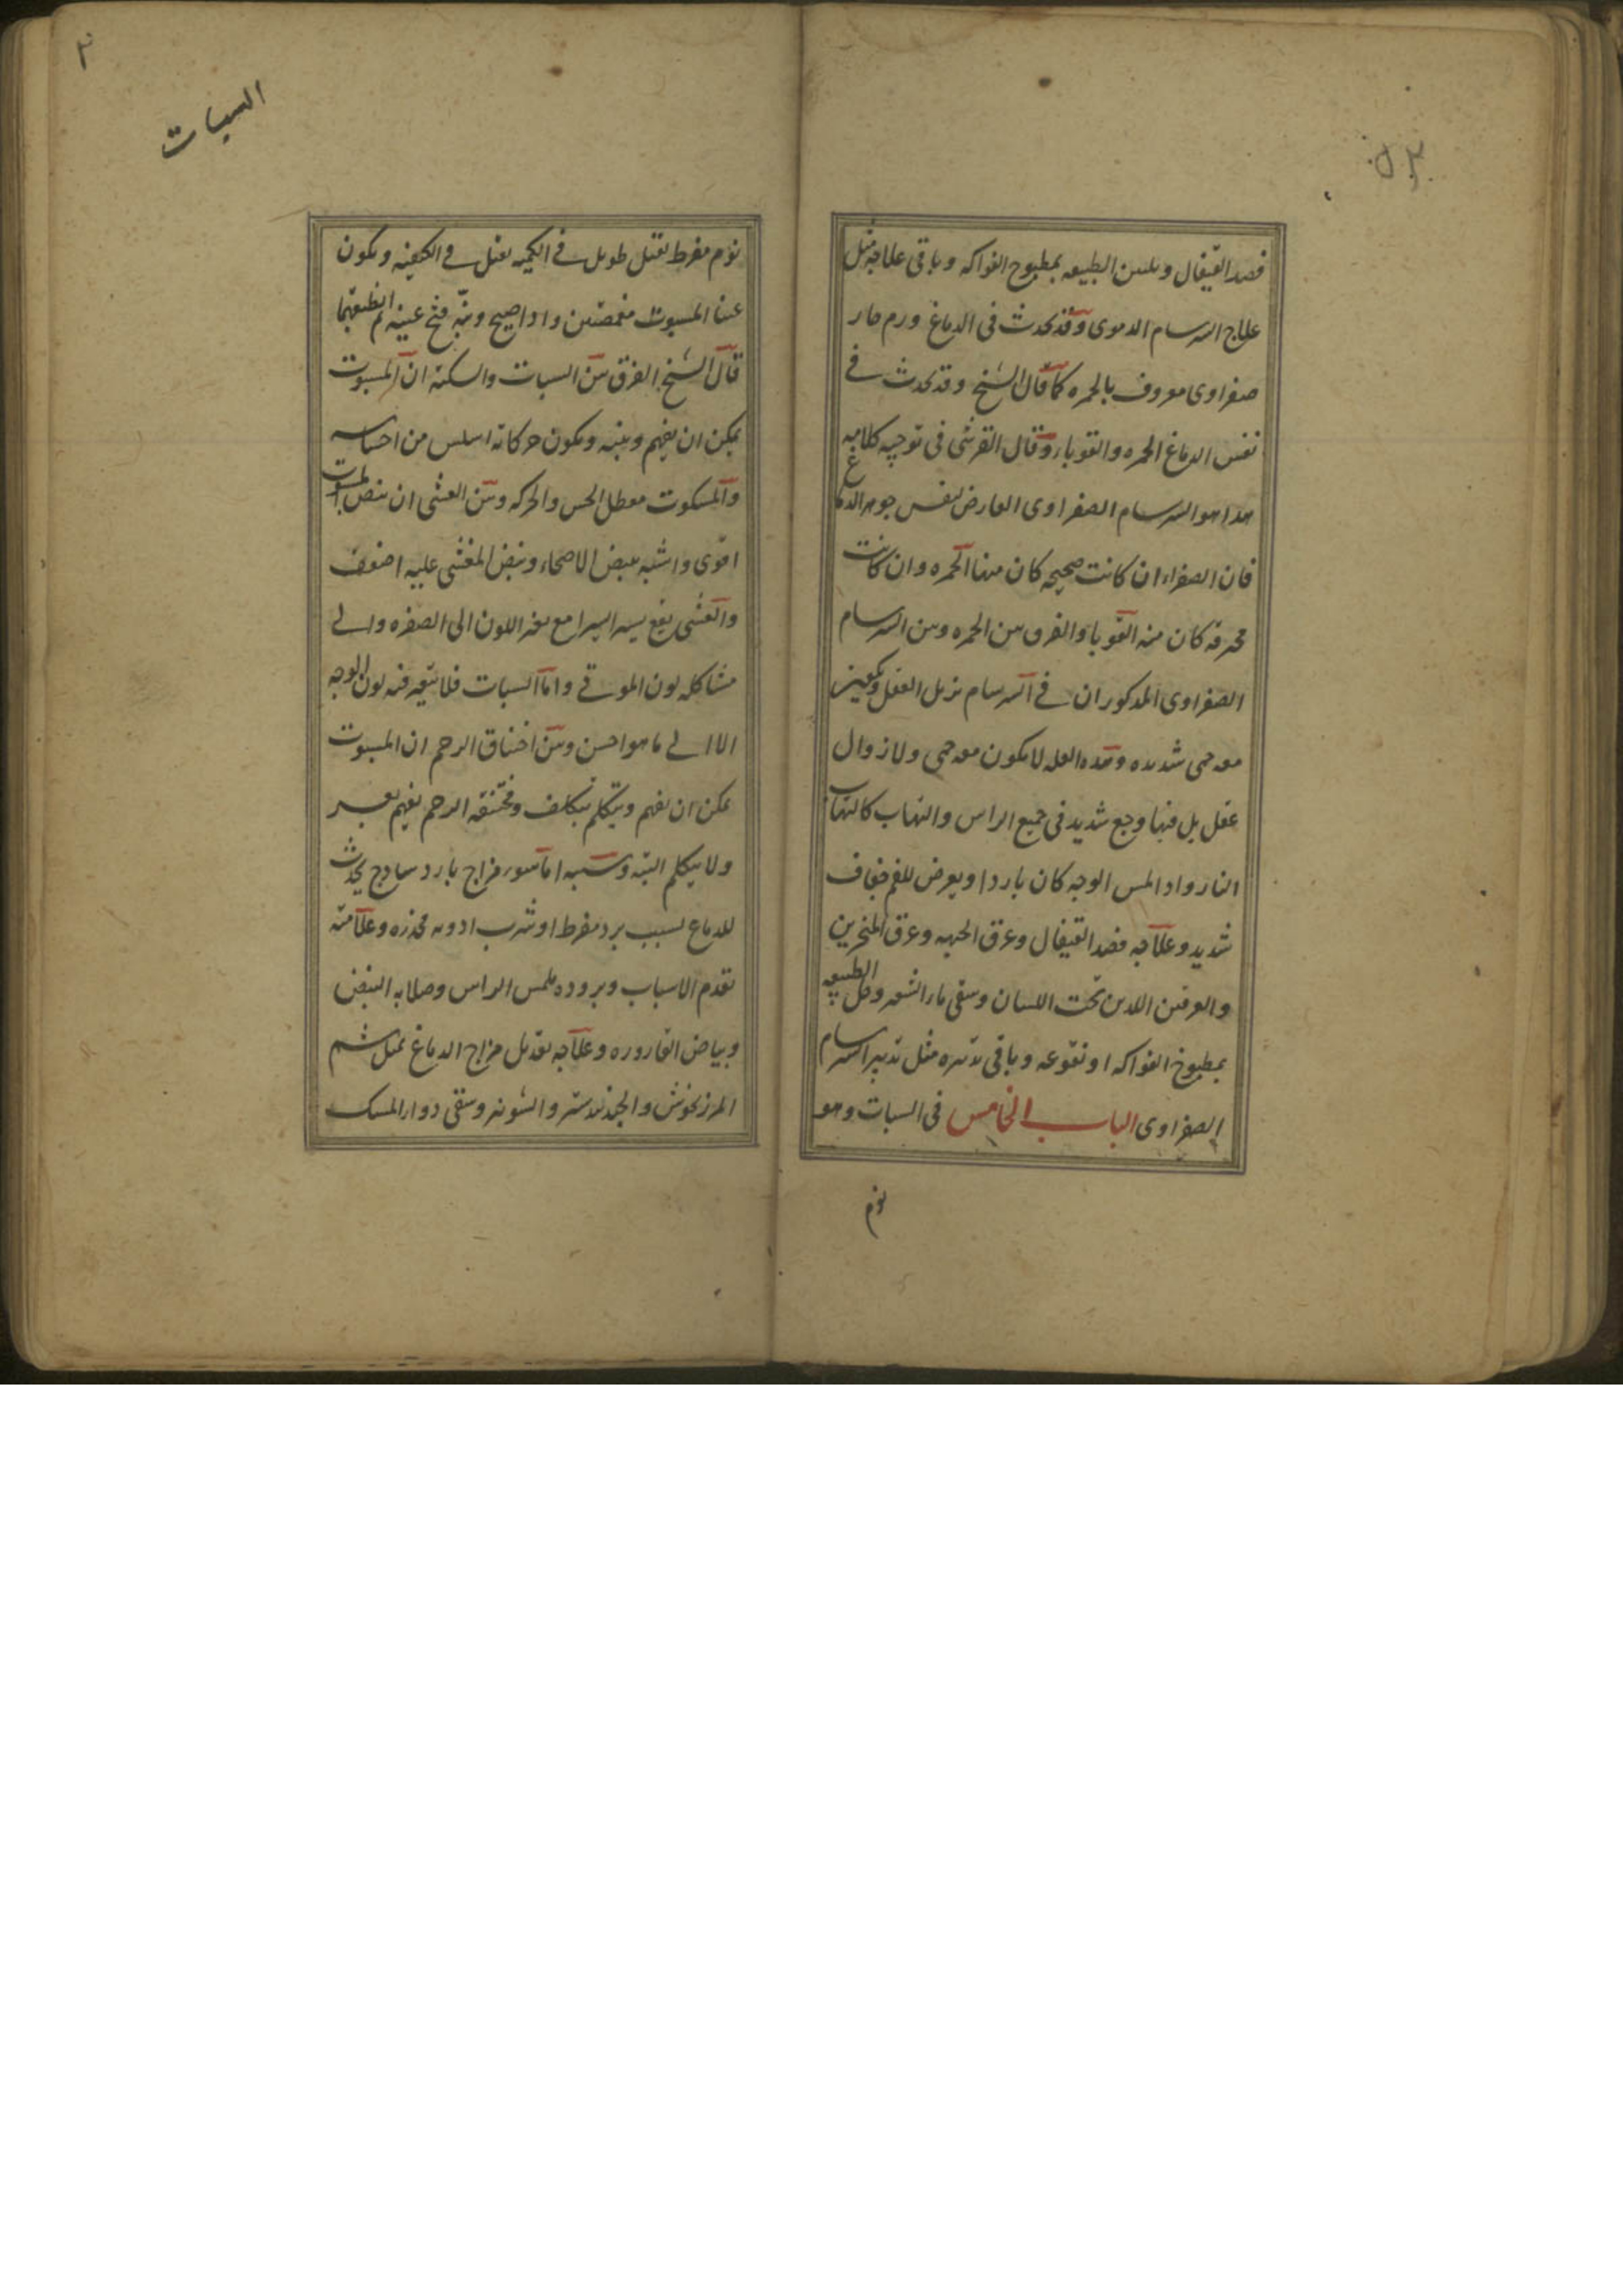 فصد القیفال وتلیین الطبیعه بمطبوخ الفواکه وباقی علاجه مثل
علاج السرسام الدموی وقد یحدث فی الدماغ ورم حار
صفراوی معروف بالحمره کما قال الشیخ وقد یحدث فی
نفس الدماغ الحمره والقوبا وقال القرشی فی توجیه کلامه
هذا هو السرسام الصفراوی العارض لنفس جوهر الدماغ
فان الصفراء ان کانت صحیحه کان منها الحمره وان کانت
محرقه کان منه القوبا والفرق بین الحمره وبین السرسام
الصفراوی المذکور ان فی السرسام یزیل العقل ویکون
معه حمی شدیده وهذه العله لا یکون معه حمی ولا زوال
عقل بل فیها وجع شدید فی جمیع الراس والتهاب کالتهاب
النار واذا لمس الوجه کان باردا ویعرض للفم جفاف
شدید وعلاجه فصد القیفال وعرق الجبهه وعرق المنخرین
والعرقین اللذین تحت اللسان وسقی ماء الشعیر وحل الطبیعه
بمطبوخ الفواکه او نقوعه وباقی تدبیره مثل تدبیر السرسام
الصفراوی الباب الخامس فی السبات وهو
نوم
السبات
نوم مفرط ثقیل طویل فی الکمیه ثقیل فی الکیفیه ویکون
عینا المسبوت مغمضتین واذا صیح ونبه فتح عینیه ثم اطبقهما
قال الشیخ الفرق بین السبات والسکته ان المسبوت
یمکن ان یفهم وینبه ویکون حرکاته اسلس من احساسه
والمسکوت معطل الحس والحرکه وبین الغشی ان نبض المسبوت
اقوی واشبه بنبض الاصحاء ونبض المغشی علیه اضعف
والغشی یقع یسیرا یسیرا مع تغیر اللون الی الصفره والی
مشاکله لون الموتی واما السبات فلا یتغیر فیه لون الوجه
الا الی ما هو احسن وبین اختناق الرحم ان المسبوت
یمکن ان یفهم ویتکلم بتکلف ومختنقه الرحم یفهم بعسر
ولا یتکلم البته وسببه اما سوء مزاج بارد ساذج یحدث
للدماغ بسبب برد مفرط او شرب ادویه مخدره وعلامته
تقدم الاسباب وبروده ملمس الراس وصلابه النبض
وبیاض القاروره وعلاجه تعدیل مزاج الدماغ بمثل شم
المرزنجوش والجندبیدستر والشونیز وسقی دواء المسک